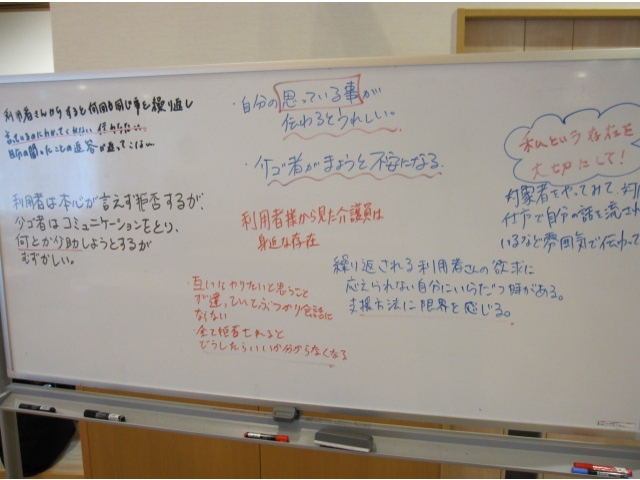 利用者さんからすると何回も同じ事を繰り返し
言っているのにわかってくれない 伝わらない。
自分の聞いたことの返答が返ってこない
利用者は本心が言えず拒否するが、
介ゴ者はコミュニケーションをとり、
何とか介助しようとするが
むずかしい。
・自分の思っている事が
伝わるとうれしい。
・介ゴ者がまようと不安になる。
利用者様から見た介護員は
身近な存在
・互いにやりたいと思うこと
が違っていてぶつかり会話に
なくない
・全て拒否されると
どうしたらいいか分からなくなる
繰り返される利用者さんの欲求に
応えられない自分にいらだつ時がある。
支援方法に限界を感じる。
私という存在を
大切にして!
対象者をやってみて、対
仕方で自分の話を流され
いるなど雰囲気で伝わって